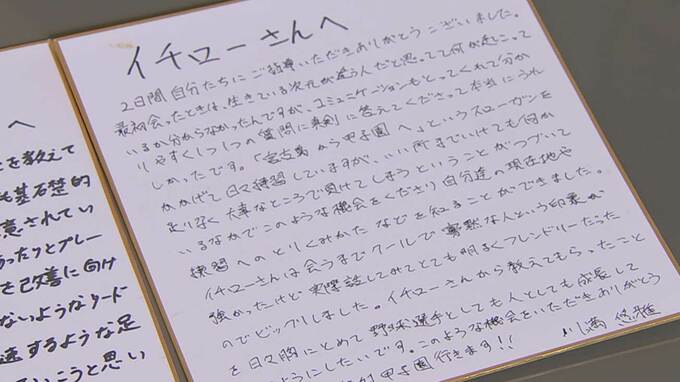 イチローさんへ
2日間自分たちにご指導いただきありがとうございました。
最初会ったときは、生きている次元が違うんだと思ってて何が起こって
いるか分からなかったんですが、コミュニケーションもとってくれて分か
りやすく1つ1つの質問に真剣に答えてくださって本当にうれ
しかったです。「宮古島から甲子園へ」というスローガンを
かかげて日々練習していますが、いい所までいけても何か
足りなく大事なところで負けてしまうということがつづいて
いるなかでこのような機会をくださり自分達の現在地や
練習へのとりくみかたなどを知ることができました。
イチローさんは会うまでクールで寡黙な人という印象が
強かったけど実際話してみてとても明るくフレンドリーだった
のでビックリしました。イチローさんから教えてもらったこと
を日々胸にとめて野球選手としても人としても成長して
ようにしたいです。このような機会をいただきありがとう
甲子園行きます!!
川満 悠雅
へ
を教えて
も基石楚的
意されてい
ったりとプレー
を改善に向け
ないようなリード
達するような足
いこうと思い